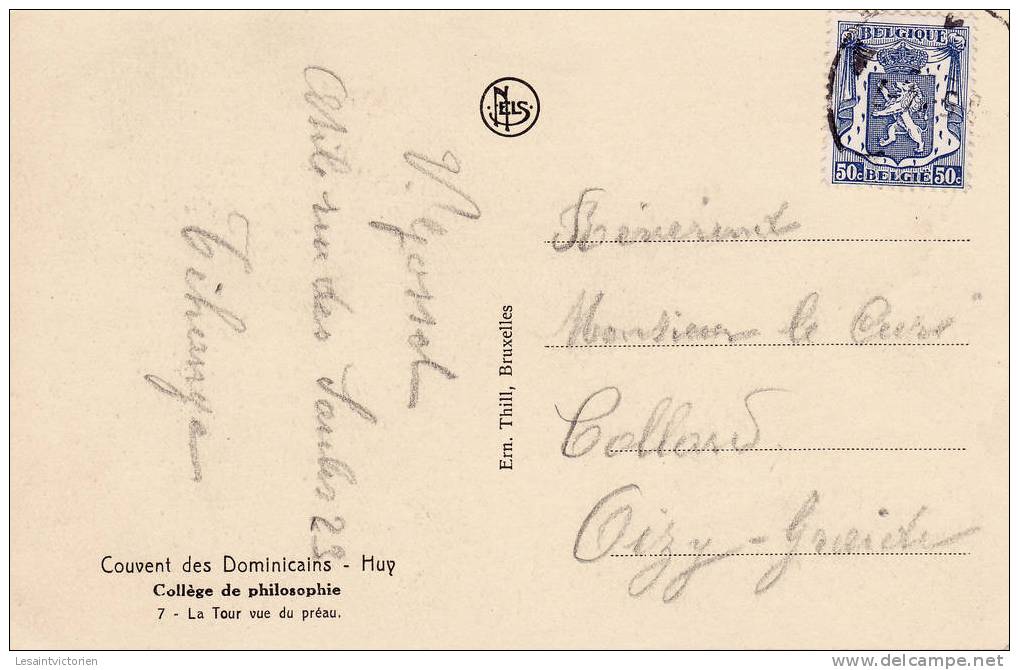 BELGIQUE
50c BELGIË 50c
NELS
Révérend
Monsieur le Curé
Collard
Oizy-Graide
V.
rue des Saules 23
Tihange
Ern. Thill, Bruxelles
Couvent des Dominicains - Huy
Collège de philosophie
7 - La Tour vue du préau.
Lesaintvictorien
delcampe.net